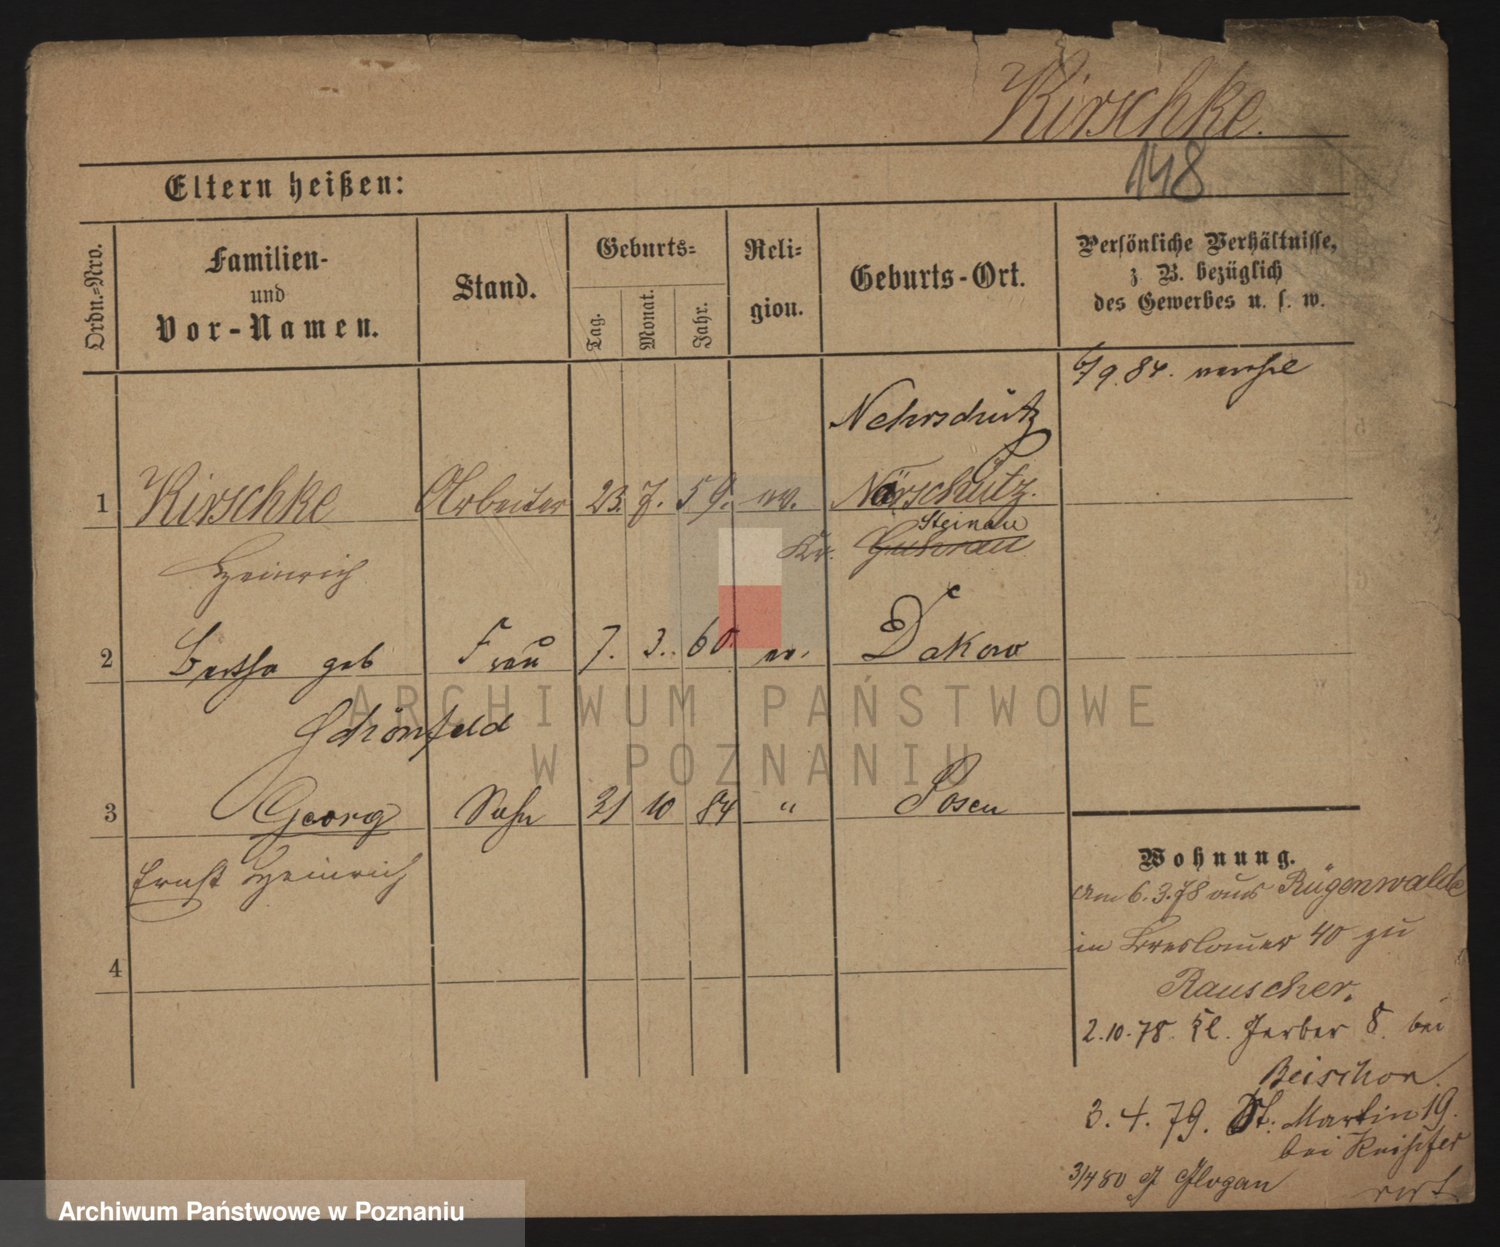 Kirschke.
148
Eltern heißen:
Ordn.-Nro.
Familien-
und
Vor-Namen.
Stand.
Geburts-
Tag.
Monat.
Jahr.
Reli-
gion.
Geburts-Ort.
Persönliche Verhältnisse,
z. B. bezüglich
des Gewerbes u. s. w.
9.84.
Nehrschütz
1 Kirschke Arbeiter 23. 7. 59. ev. Närschütz.
Steinau
Heinrich Kr. Guhrau
2 Bertha geb Frau 7. 3. 60. ev. Dakow
Schönfeld
3 Georg Sohn 31 10 84 " Posen
Ernst Heinrich
4
Wohnung.
Am 6.3.78 aus Rügenwalde
in Breslauer 40 zu
Rauscher.
2.10.78. Kl. Gerber 8. bei
Beischor.
3.4.79. St. Martin 19.
bei
3/4 80 Glogau
ARCHIWUM PAŃSTWOWE
W POZNANIU
Archiwum Państwowe w Poznaniu